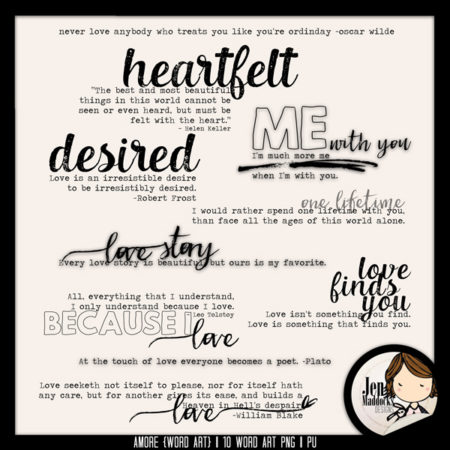 never love anybody who treats you like you're ordinday -oscar wilde
heartfelt
"The best and most beautiful
things in this world cannot be
seen or even heard, but must be
felt with the heart."
- Helen Keller
desired
Love is an irresistible desire
to be irresistibly desired.
-Robert Frost
ME with you
I'm much more me
when I'm with you.
one lifetime
I would rather spend one lifetime with you,
than face all the ages of this world alone.
love story
Every love story is beautiful but ours is my favorite.
love
finds
you
Love isn't something you find.
Love is something that finds you.
All, everything that I understand,
I only understand because I love.
Leo Tolstoy
BECAUSE I
love
At the touch of love everyone becomes a poet. -Plato
Love seeketh not itself to please, nor for itself hath
any care, but for another gives its ease, and builds a
Heaven in Hell's despair
-William Blake
love
Jen
Maddocks
DESIGNS
AMORE {WORD ART} | 10 WORD ART PNG | PU